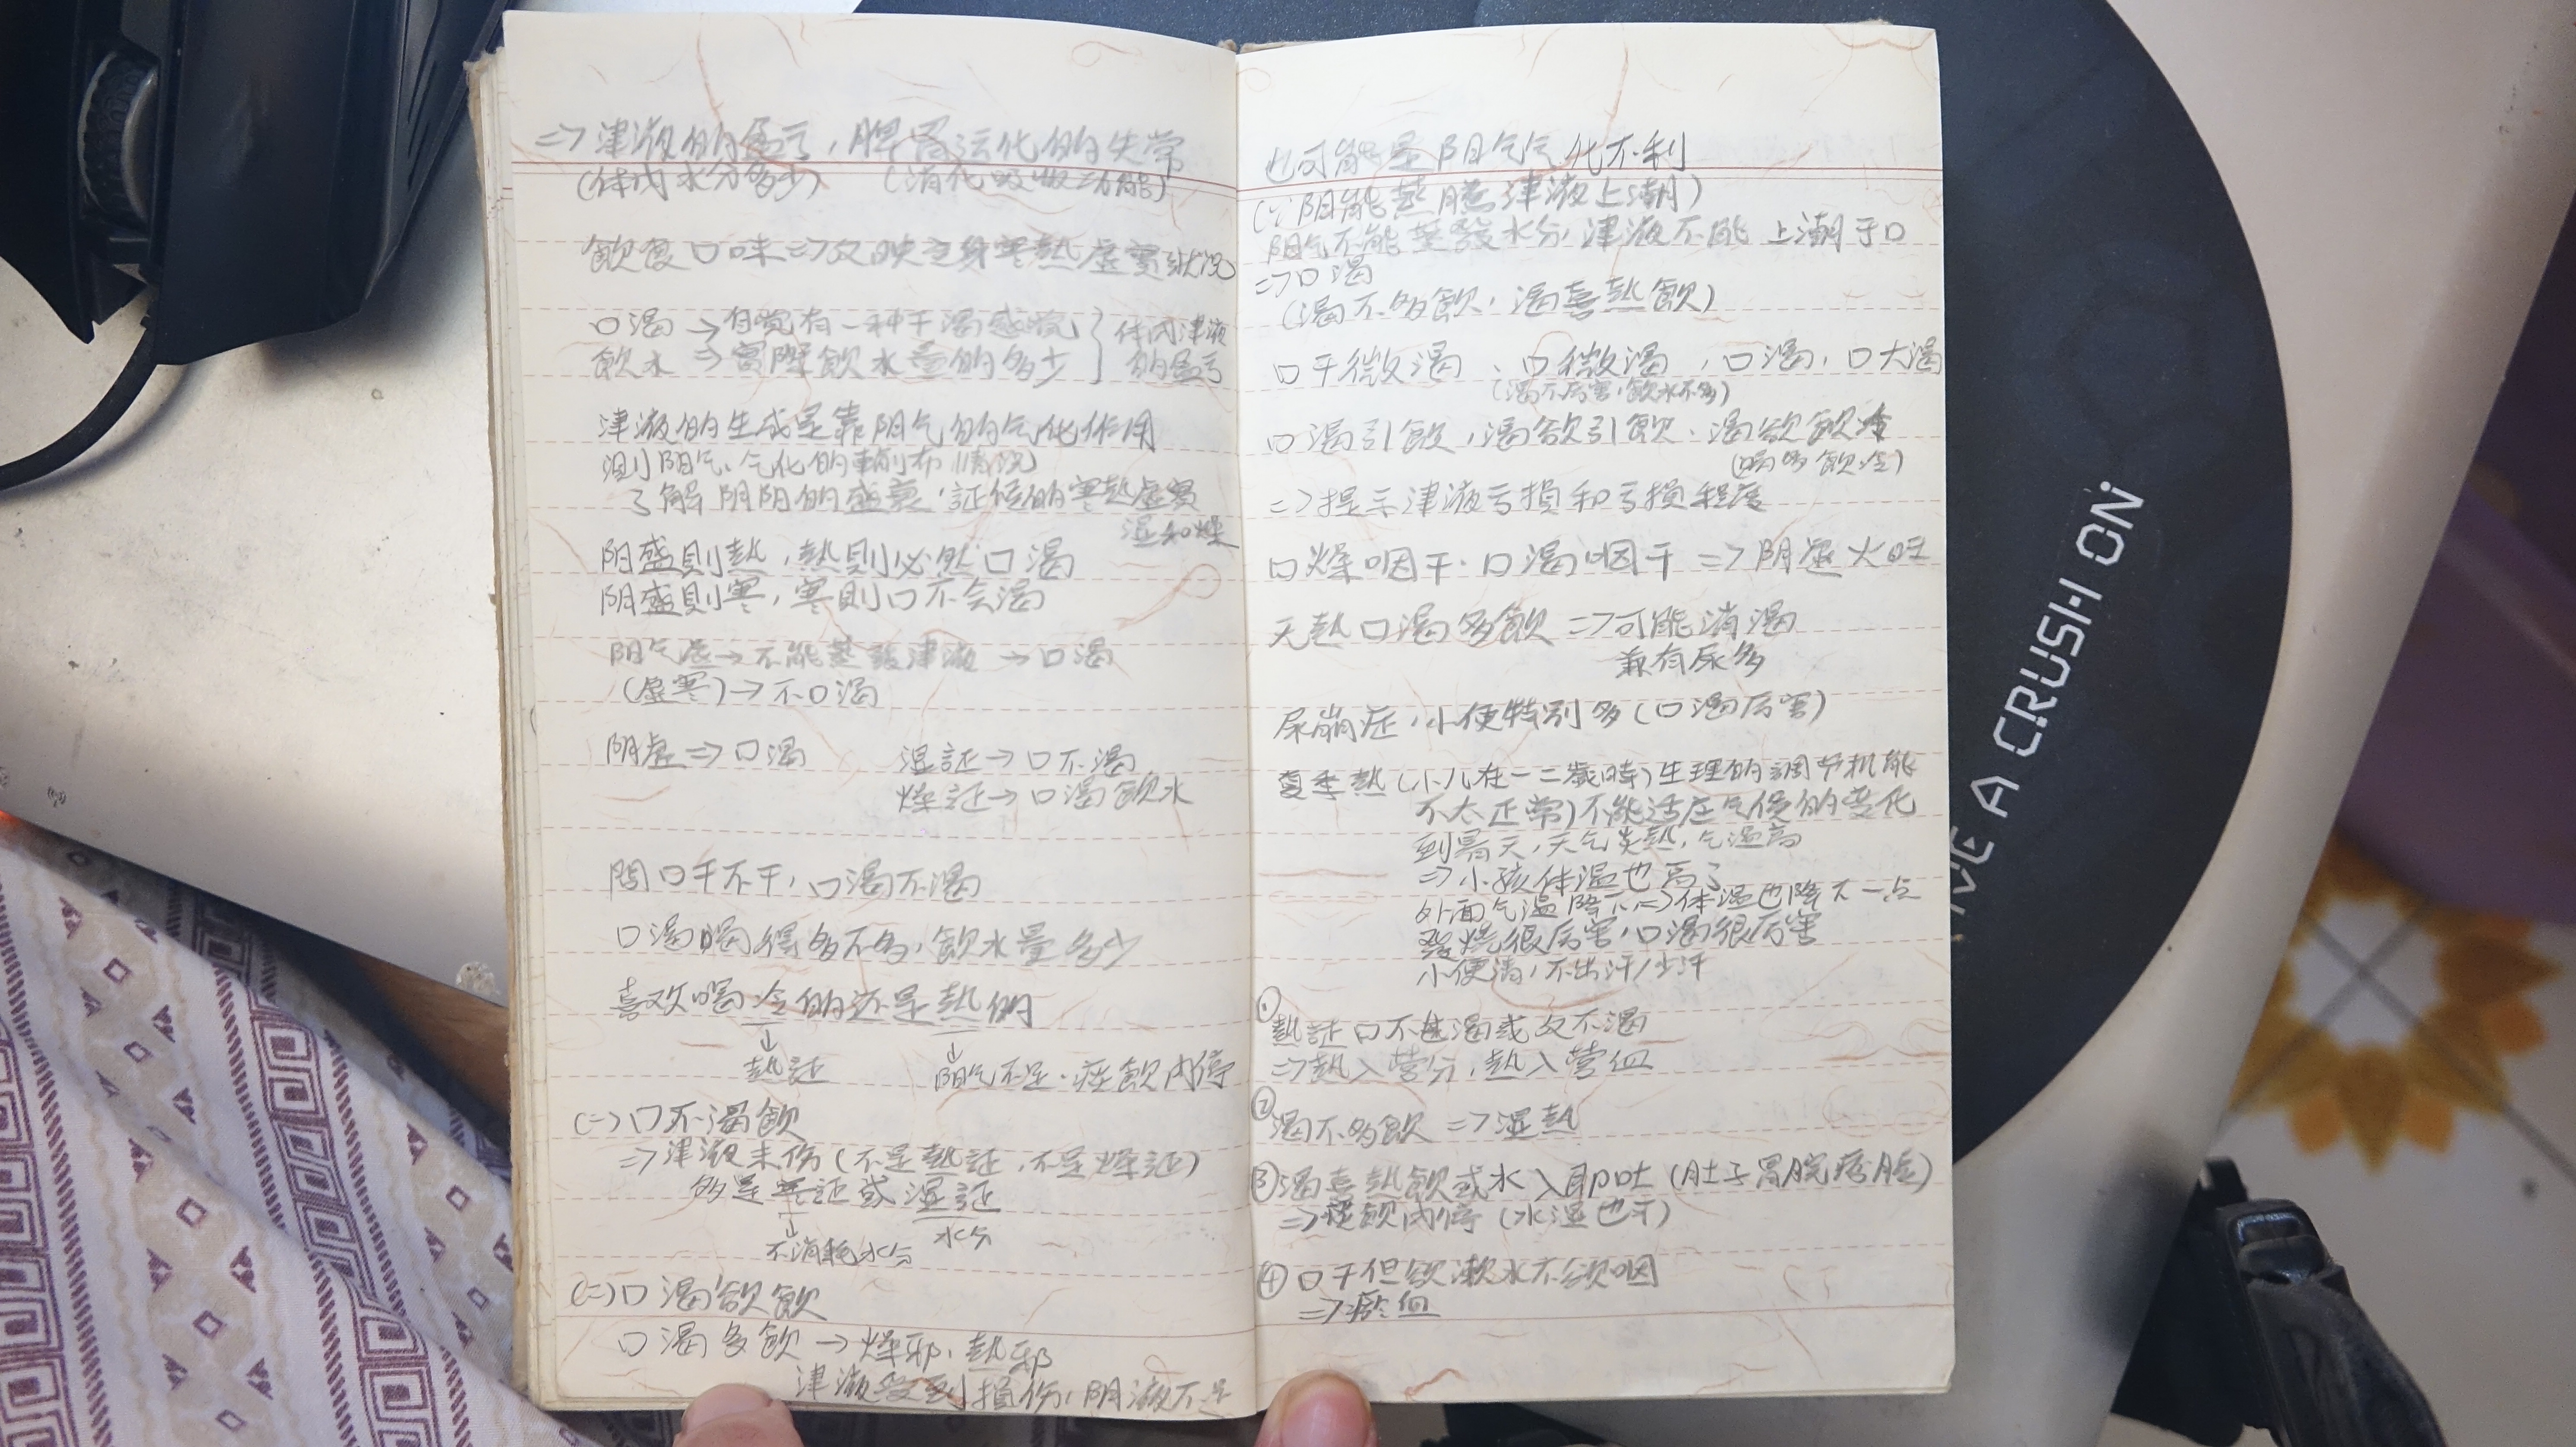 => 津液的盈亏，脾胃运化的失常
(体内水分多少) (消化吸收功能)
飲食口味=>反映全身寒熱虚實狀况
口渴→自觉有一种干渴感觉 } 体内津液
飲水=>實際飲水量的多少 } 的盈亏
津液的生成是靠阳气的气化作用
測阳气、气化的輸布情况
了解阴阳的盛衰，証候的寒熱虚實
湿和燥
阳盛則熱，熱則必然口渴
阴盛則寒，寒則口不会渴
阳气虚→不能蒸發津液→口渴
(虚寒)→不口渴
阴虚=>口渴 湿証→口不渴
燥証→口渴飲水
問口干不干，口渴不渴
口渴喝得多不多，飲水量多少
喜欢喝冷的还是熱的
↓ ↓
熱証 阳气不足.痰飲内停
(一)口不渴飲
=>津液未伤(不是熱証,不是燥証)
多是寒証或湿証
↓ 水分
不消耗水分
(二)口渴欲飲
口渴多飲→燥邪,熱邪
津液受到損伤,阴液不足
也可能是阳气气化不利
(∵阳能蒸騰津液上潮)
阳气不能蒸發水分,津液不能上潮于口
=>口渴
(渴不多飲,渴喜熱飲)
口干微渴、口微渴,口渴,口大渴
(渴不厉害,飲水不多)
口渴引飲,渴欲引飲.渴欲飲冷
(喝多飲冷)
=>提示津液亏損和亏損程度
口燥咽干.口渴咽干=>阴虚火旺
无熱口渴多飲=>可能消渴
兼有尿多
尿崩症,小便特别多(口渴厉害)
夏季熱(小儿在一二歲時)生理的調节机能
不太正常)不能适应气侯的变化
到暑天,天气炎熱,气温高
=>小孩体温也高了
外面气温降下=>体温也降下一点
發烧很厉害,口渴很厉害
小便清,不出汗/少汗
①
熱証口不甚渴或反不渴
=>熱入营分,熱入营血
②
渴不多飲=>湿熱
③渴喜熱飲或水入即吐(肚子胃脘痞脹)
=>痰飲内停(水湿也可)
④口干但欲漱水不欲咽
=>瘀血
A CRUSH ON